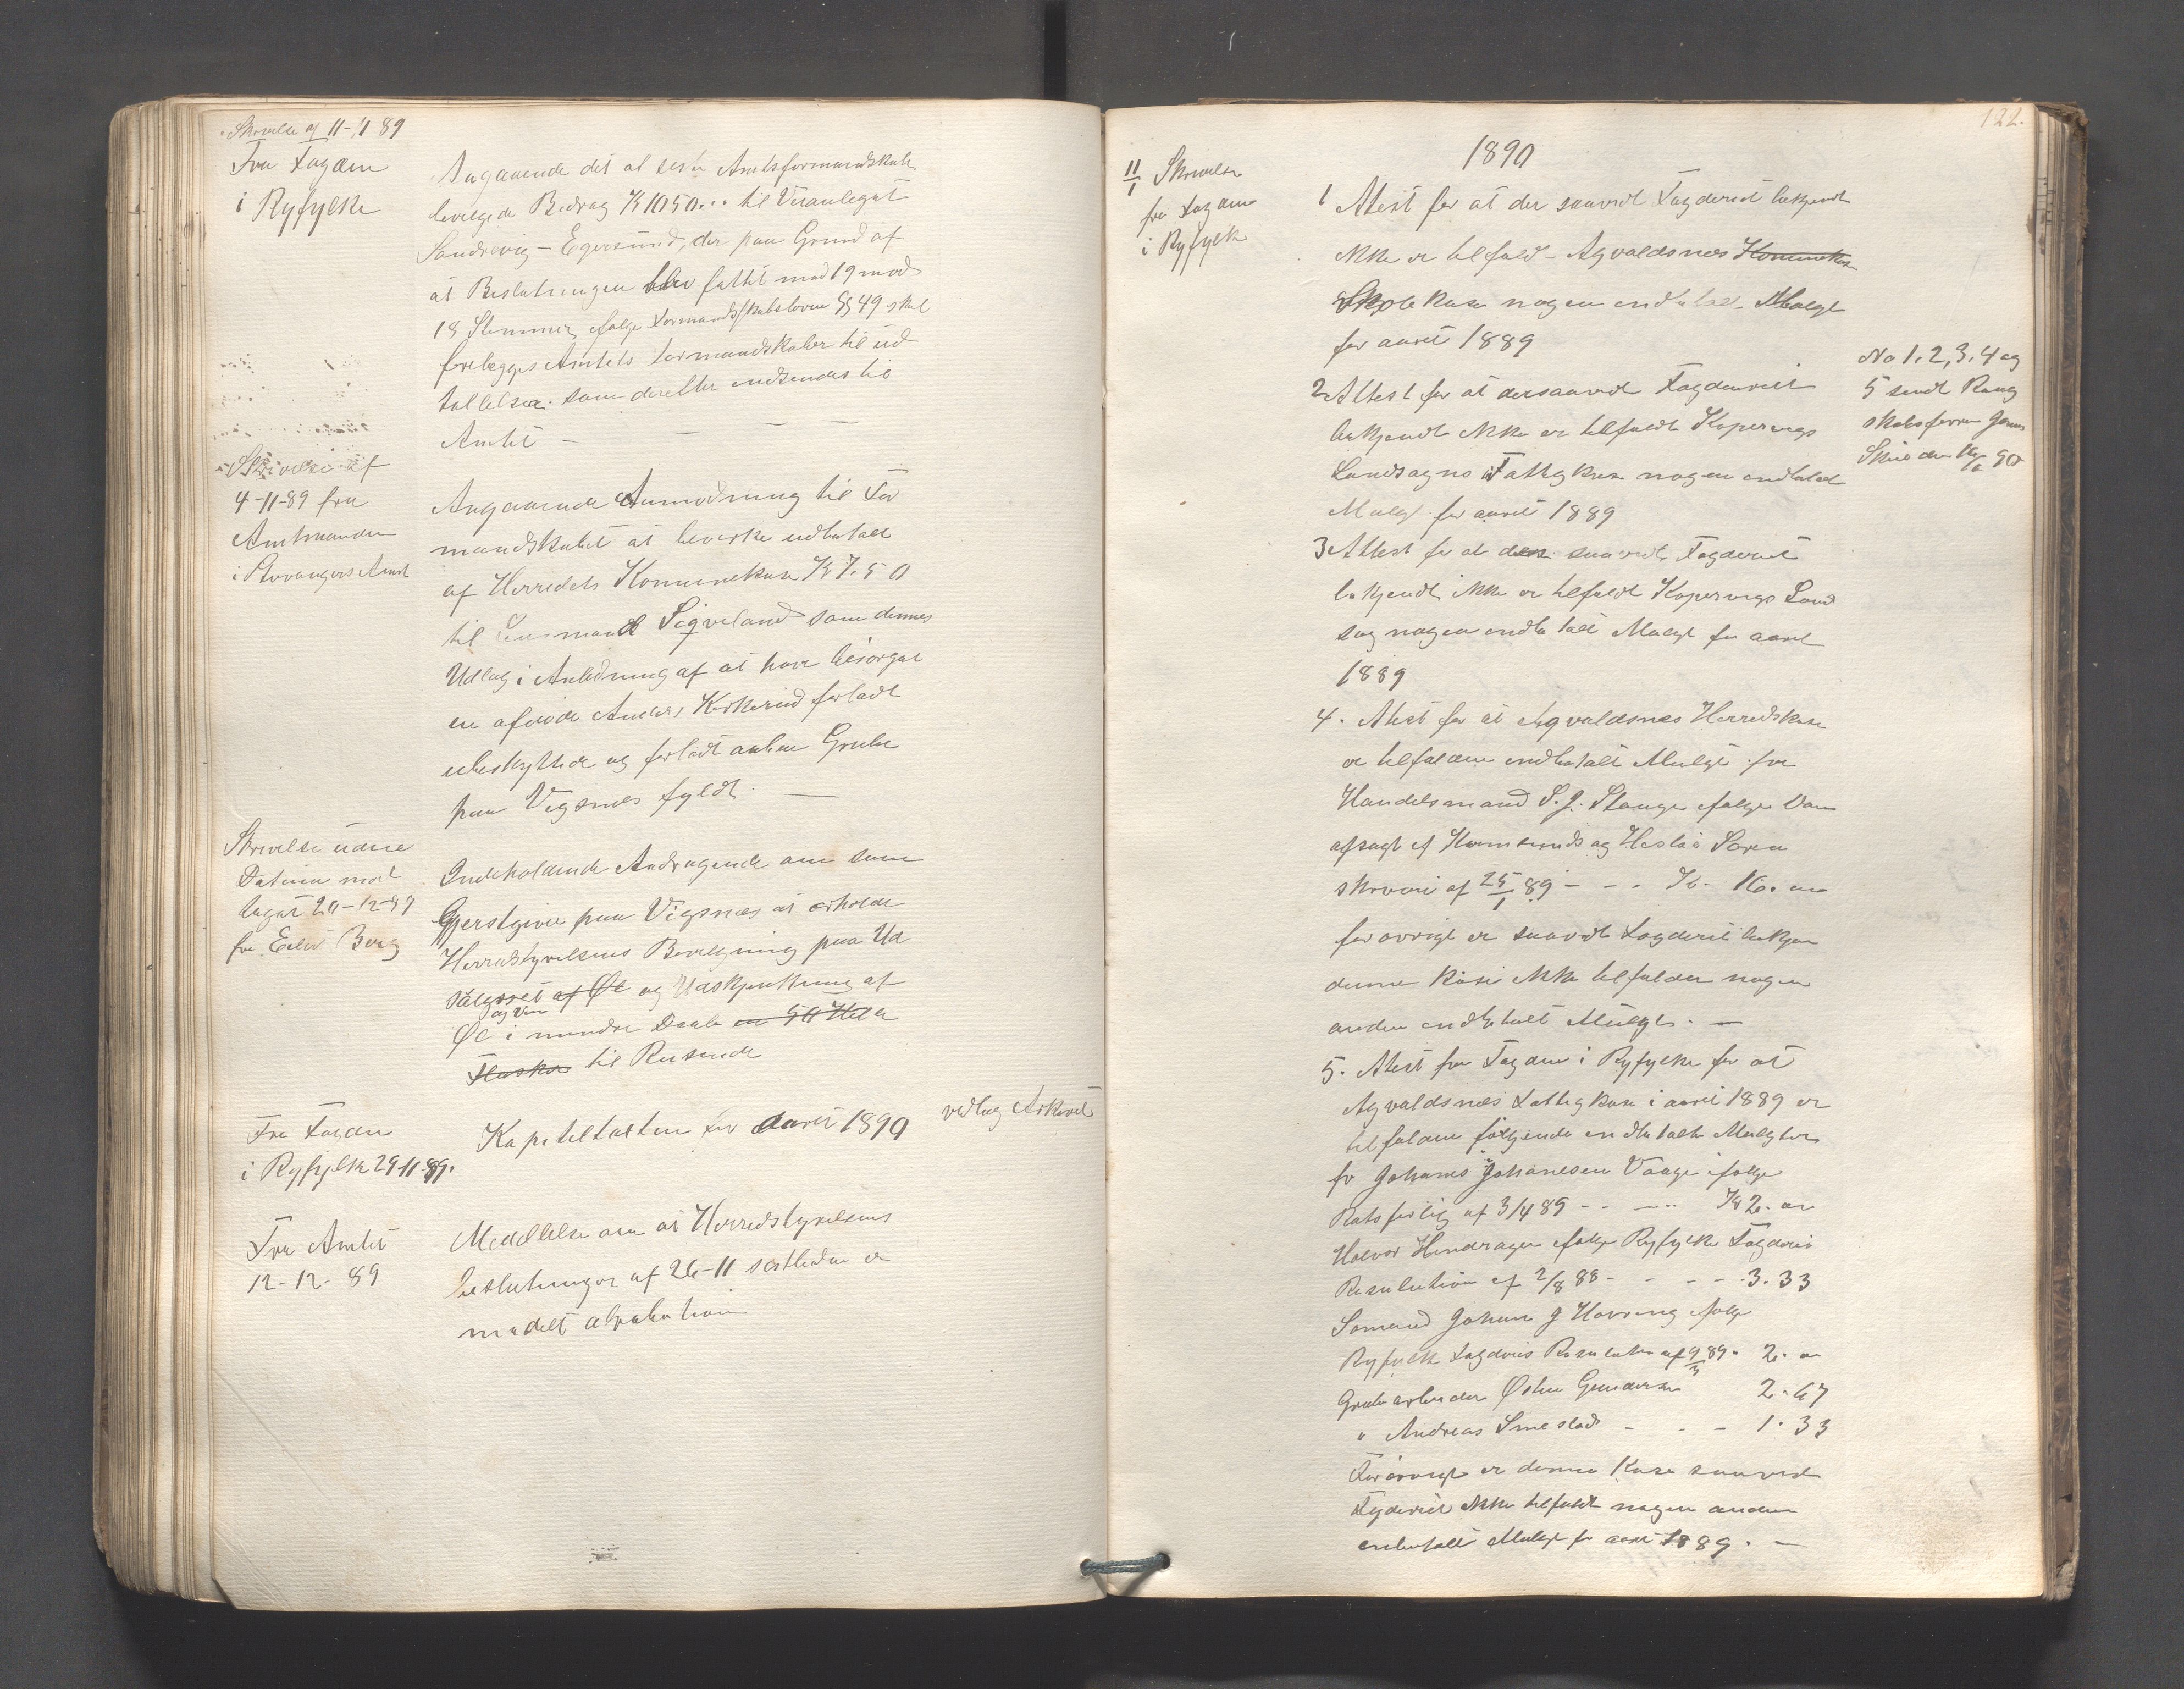 Skrivelse af 11-11 89
Fra Fogden
i Ryfylke
Angaaende det at sidste Amtsformandskab
bevilgede Bidrag Kr 1050... til Veianlegget
Sandvig - Egersund, der paa Grund af
at Beslutningen blev fattet med 19 mod
18 Stemmer, ifølge Formandskabsloven §§ 49 skal
forelægges Amtets Formandskaber til ud
talelse som derefter indsendes til
Amtet - - - -
Skrivelse af
4-11-89 fra
Amtmanden
i Stavangers Amt
Angaaende Anmodning til For
mandskabet at bevirke udbetalt
af Herredets Kommunekasse Kr 7.50
til Lensmand Sigveland som dennes
Udlæg i Anledning af at have besørget
en afdøde Anders forladt
ubeskyttede og forladt aaben Grube
paa Vigsnes fyldt. -
Skrivelse uden
Datum mod
taget 20-12-89
fra Berg
Indeholdende Andragende om som
Gjerstgiver paa Vigsnes at erholde
Herredstyrelsens Bevilgning paa Ud
salgsret af Øl og Udskjenkning af
og Vin
Øl i mindre Dele en 50 Hele
Flasker til Reisende
Fra Fogden
i Ryfylke 29-11-89.
Kapiteltaksten for Aaret 1890
vedlagt Arkivet
Fra Amtet
12-12-89
Meddelelse om at Herredstyrelsens
beslutninger af 26-11 sidstleden er
meddelt approbation
122.
1890
11/1 Skrivelse
fra Fogden
i Ryfylke
1 Atest for at der saavidt Fogderiet bekjendt
ikke er tilfaldt Agvaldsnes Kommunekasse
Skolekasse nogen indbetalt Mulgt
for aaret 1889
2 Attest for at der saavidt Fogderiet
bekjendt ikke er tilfaldt Kopervigs
Landsogns Fattigkasse nogen indbetalt
Mulgt for aaret 1889
3 Attest for at der saavidt Fogderiet
bekjendt ikke er tilfaldt Kopervigs Land
sog nogen indbetalt Mulgt for aaret
1889
4. Atest for at Agvaldsnes Herredskasse
er tilfalden indbetalt Mulgt for
Handelsmand S. J. Stange ifølge Dom
afsagt af Karmsunds og Hesbø Soren
skriveri af 25/1 89 - - - Kr. 16. "
forøvrigt er saavidt Fogderiet bekjen
denne Kasse ikke tilfalden nogen
anden indbetalt Mulgt. -
5. Atest fra Fogden i Ryfylke for at
Agvaldsnes Fattigkasse i aaret 1889 er
tilfalden følgende indbetalte Mulgter
for Johannes Johanesen Vaage ifølge
Retsforlig af 3/4 89 - - - - Kr 2. "
Halvor Hendragen ifølge Ryfylke Fogderis
Resolution af 2/8 88 - - - - 3.33
Sømand Johan J Havring ifølge
Ryfylke Fogderis Resolution af 9/3 89. 2. "
Grubearbeider Østen Gundersen 2.67
" Andreas Smestad - - - 1.33
Forøvrigt er denne Kasse saavidt
Fogderiet ikke tilfaldt nogen anden
indbetalt Mulgt for aaret 1889. -
No 1, 2, 3, 4 og
5 sendt Regn
skabsfører
90